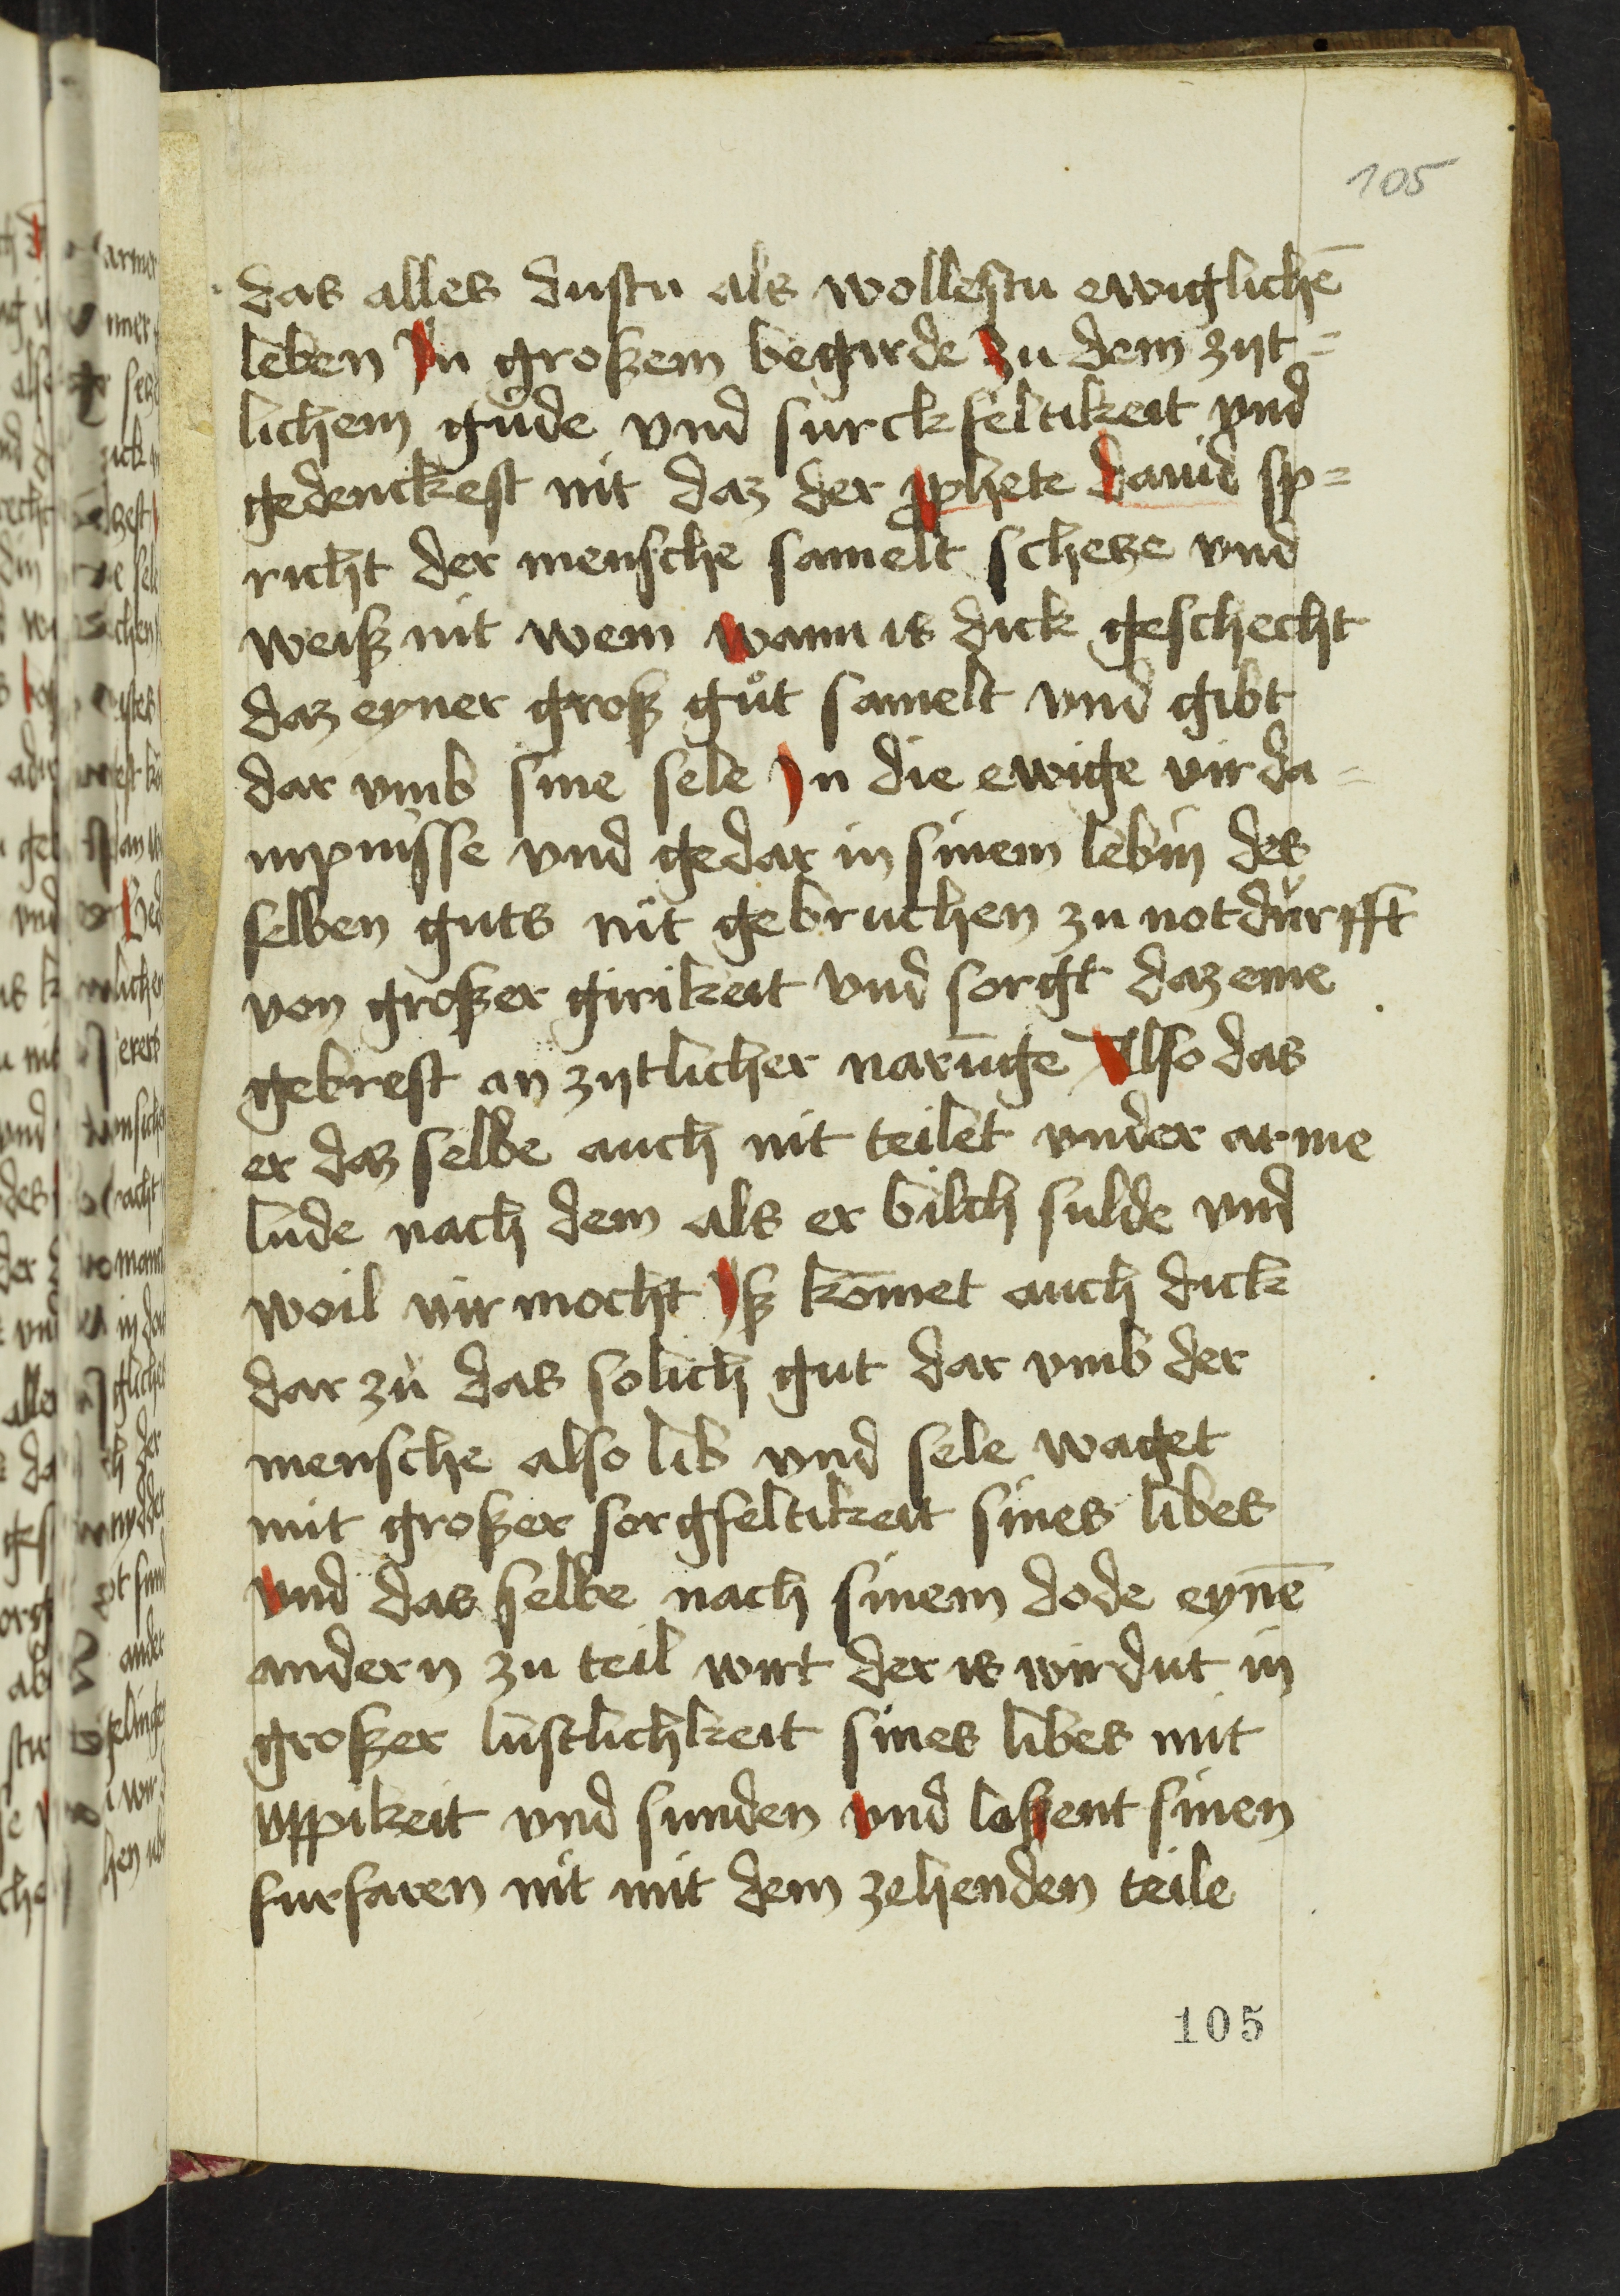 105
das alles dustu als wollestu ewiglichē
leben Jn großem begirde zu dem zijt=
lichem gůde vnd surckfeltikeit vnd
gedenckest nit daz der ꝓphete dauid sp=
richt der mensche samelt schetze vnd
weiß nit wem wann is dick geschecht
daz eyner groß gůt samelt vnd gibt
dar vmb sine sele Jn die ewige virda=
mpnisse vnd gedar in sinem lebin des
selben guts nit gebruchen zu notdürfft
von großer girikeit vnd sorgt daz eme
gebrest an zijtlicher narūge Also das
er daz selbe auch nit teilet vnder arme
lude nach dem als er bilch sulde vnd
woil vir mocht Jß kōmet auch dick
dar zů das solich gut dar vmb der
mensche also lib vnd sele waget
mit großer sorgfeltikeit sines libes
vnd das selbe nach sinem dode eynē
andern zu teil wirt der is virdut in
großer lustlichkeit sines libes mit
vppikeit vnd sunden vnd loßent sinen
furfaren nit mit dem zehenden teile
105